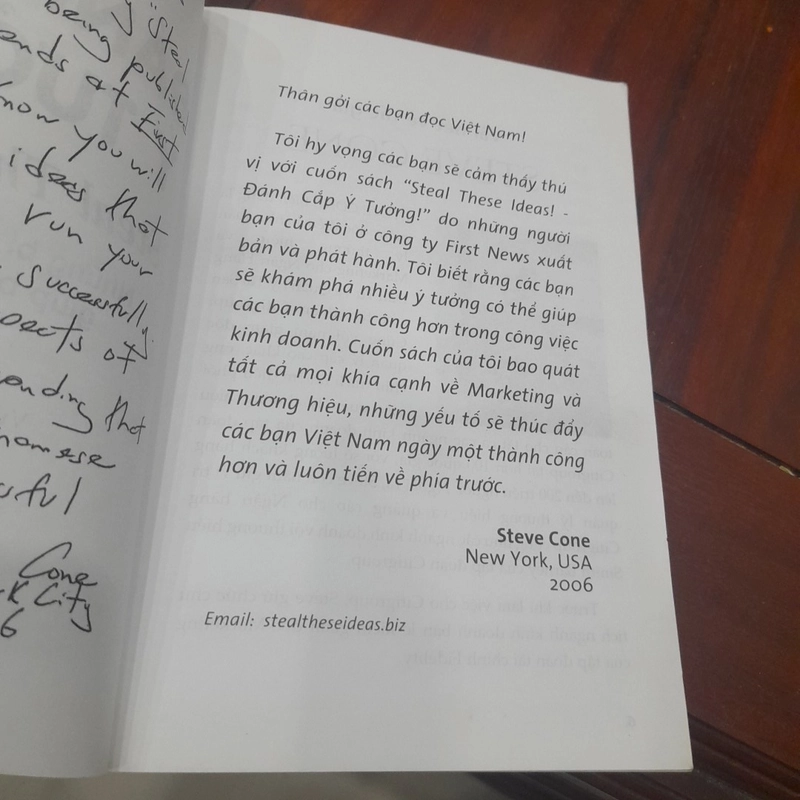 "Steal
being published
ends at First
know you will
ideas that
run your
successfully.
pects of
ending that
namese
ssful
Cone
K City
6
Thân gởi các bạn đọc Việt Nam!
Tôi hy vọng các bạn sẽ cảm thấy thú
vị với cuốn sách "Steal These Ideas! -
Đánh Cắp Ý Tưởng!" do những người
bạn của tôi ở công ty First News xuất
bản và phát hành. Tôi biết rằng các bạn
sẽ khám phá nhiều ý tưởng có thể giúp
các bạn thành công hơn trong công việc
kinh doanh. Cuốn sách của tôi bao quát
tất cả mọi khía cạnh về Marketing và
Thương hiệu, những yếu tố sẽ thúc đẩy
các bạn Việt Nam ngày một thành công
hơn và luôn tiến về phía trước.
Steve Cone
New York, USA
2006
Email: stealtheseideas.biz